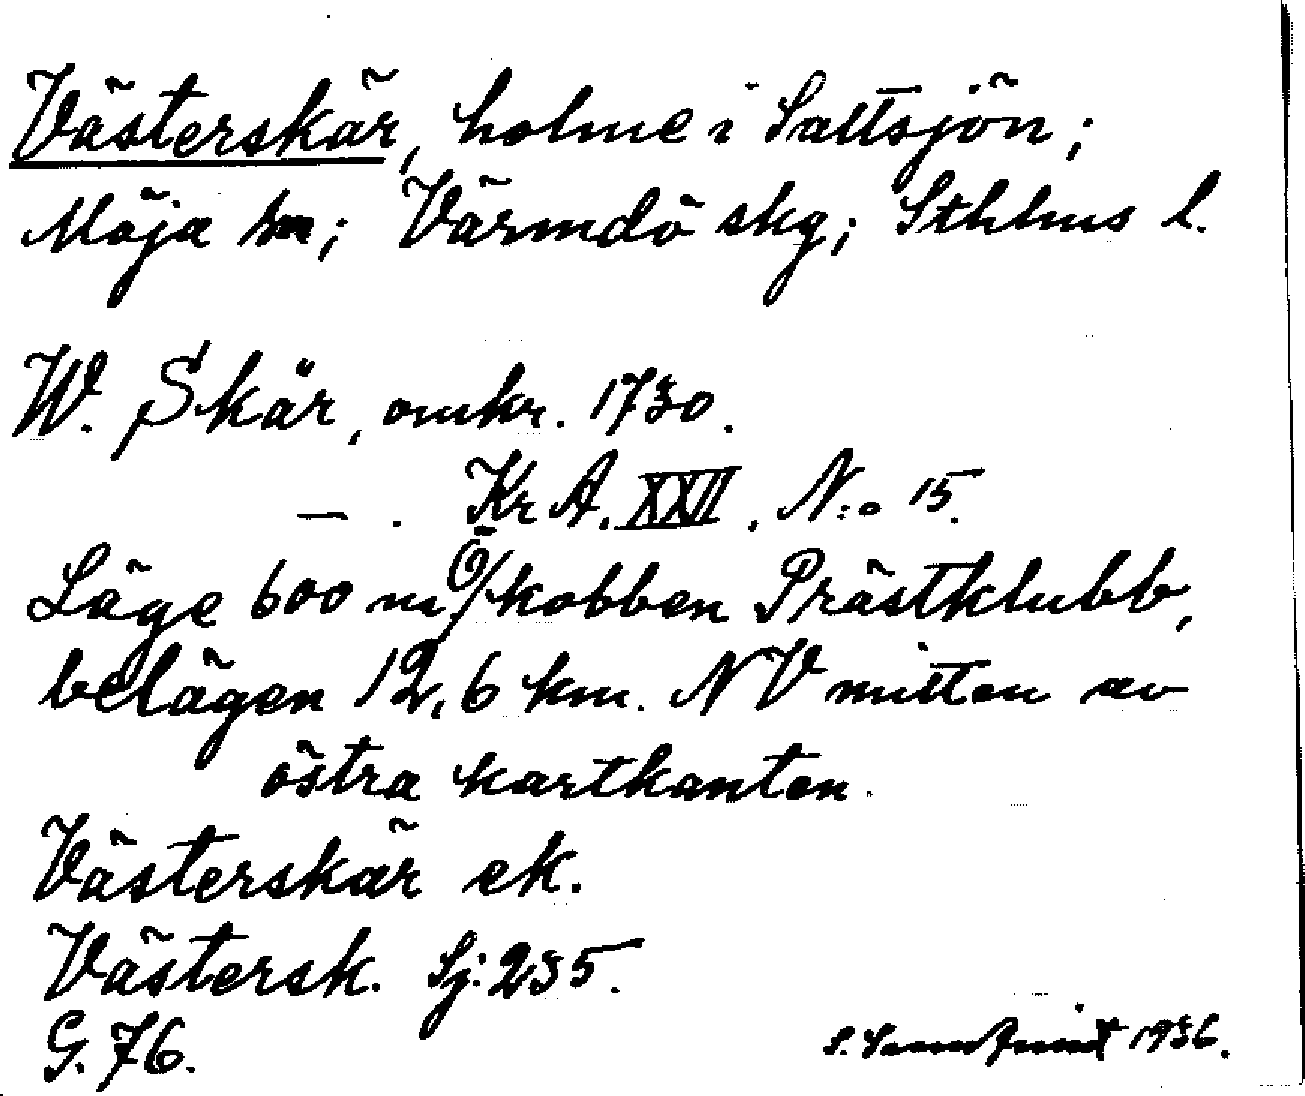 Västerskär, holme i Saltsjön;
Möja sn; Värmdö skg; Sthlms l.
W. Skär, omkr. 1730.
— . Kr A. XXII. N:o 15.
Läge 600 m Ö/kobben Prästklubb,
belägen 12,6 km. NV mitten av
östra kartkanten.
Västerskär ek.
Västersk. Sj: 235.
G. 76.
S. 1936.